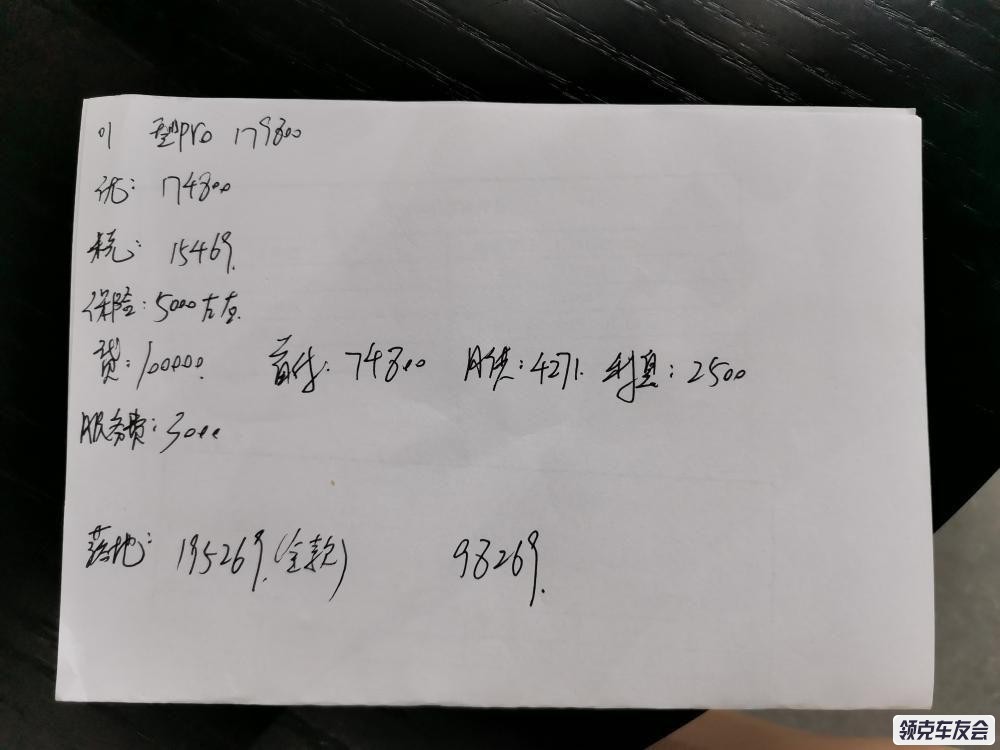 01 型pro 179800
优: 174800
税: 15469.
保险: 5000左右.
贷: 100000. 首付: 74800 月供: 4271. 利息: 2500
服务费: 3000
落地: 195269.(全款) 98269.
领克车友会